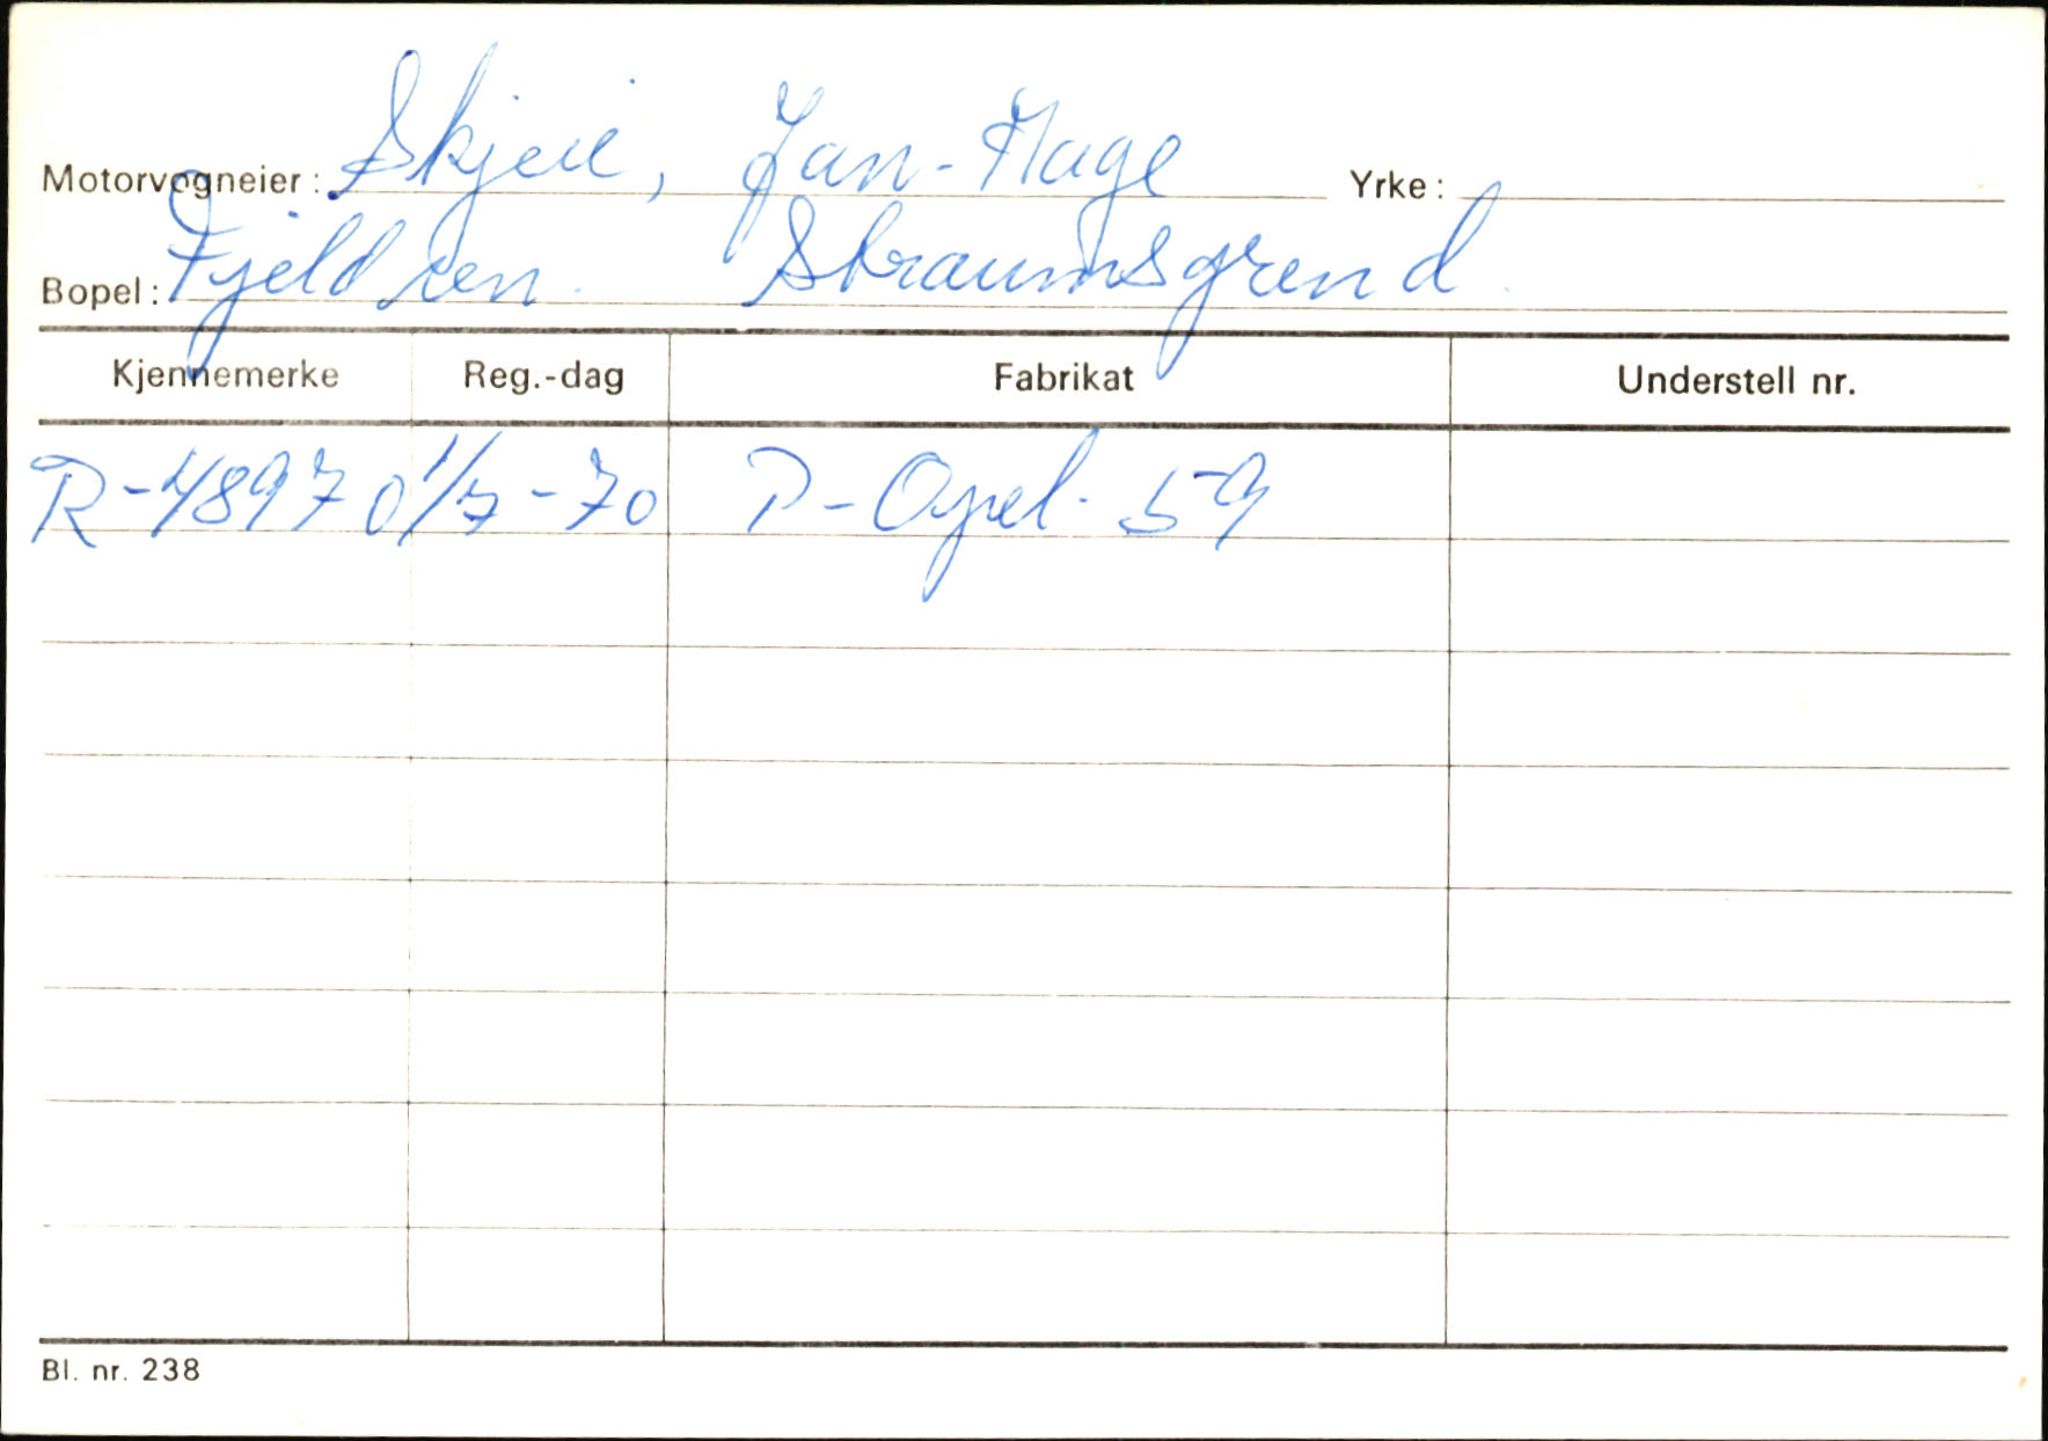 Motorvogneier: Skjeie, Jan-Hage Yrke:
Bopel: Fjeldsen. Straumsgrend.
Kjennemerke Reg.-dag Fabrikat Understell nr.
R-48970 1/7-70 P-Opel- 59
Bl. nr. 238